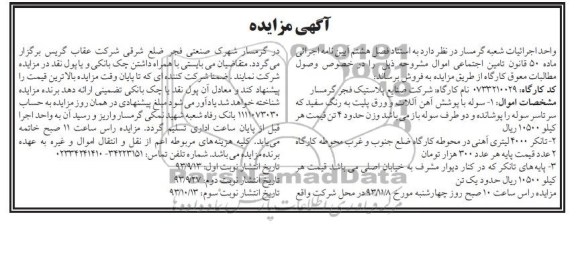 آگهی مزایده
واحد اجرائیات شعبه گرمسار در نظر دارد به استناد فصل هشتم آیین نامه اجرائی
ماده ۵۰ قانون تامین اجتماعی اموال مشروحه ذیل را در خصوص وصول
مطالبات معوق کارگاه از طریق مزایده به فروش برساند
کد کارگاه: ۰۷۳۳۲۱۰۰۲۹ نام کارگاه: شرکت صنایع پلاستیک فجر گرمسار
مشخصات اموال: ۱- سوله با پوشش آهن آلات و ورق پلیت به رنگ سفید که
سرتاسر سوله را پوشانده و دو طرف سوله باز می باشد وزن حدود ۴ تن قیمت هر
کیلو ۱۰۵۰۰ ریال
۲- تانکر ۴۰۰۰ لیتری آهنی در محوطه کارگاه ضلع جنوب و غرب محوطه کارگاه
۲ عدد قیمت پایه هر عدد ۳۰۰ هزار تومان
۳- پایه های تانکر که در کنار دیوار مشرف به خیابان اصلی می باشد قیمت هر
کیلو ۱۰۵۰۰ ریال حدود یک تن
مزایده راس ساعت ۱۰ صبح روز چهارشنبه مورخ ۹۳/۱۱/۸ در محل شرکت واقع
در گرمسار شهرک صنعتی فجر ضلع شرقی شرکت عقاب گریس برگزار
می گردد. متقاضیان می بایستی با همراه داشتن چک بانکی و یا پول نقد در مزایده
شرکت نمایند. ضمنا شرکت کننده ای که تا پایان وقت مزایده بالاترین قیمت را
پیشنهاد کند و معادل آن پول نقد یا چک بانکی تضمینی ارائه دهد برنده مزایده
شناخته خواهد شد یادآور می شود مبلغ پیشنهادی در همان روز مزایده به حساب
۱۱۱۰۷۳۰۳۰ بانک رفاه شعبه شهید نمکی گرمسار واریز و رسید آن به واحد اجرا
قبل از پایان ساعت اداری تسلیم گردد. مزایده راس ساعت ۱۱ صبح خاتمه
می یابد. کلیه هزینه های مربوطه اعم از نقل و انتقال اموال و غیره به عهده
برنده مزایده می باشد. شماره تلفن تماس: ۳۴۲۲۳۱۵۱-۰۲۳۳۴۲۴۱۴۱۰
تاریخ انتشار نوبت اول: ۹۳/۹/۱۳
تاریخ انتشار نوبت دوم: ۹۳/۹/۲۷
تاریخ انتشار نوبت سوم: ۹۳/۱۰/۱۳